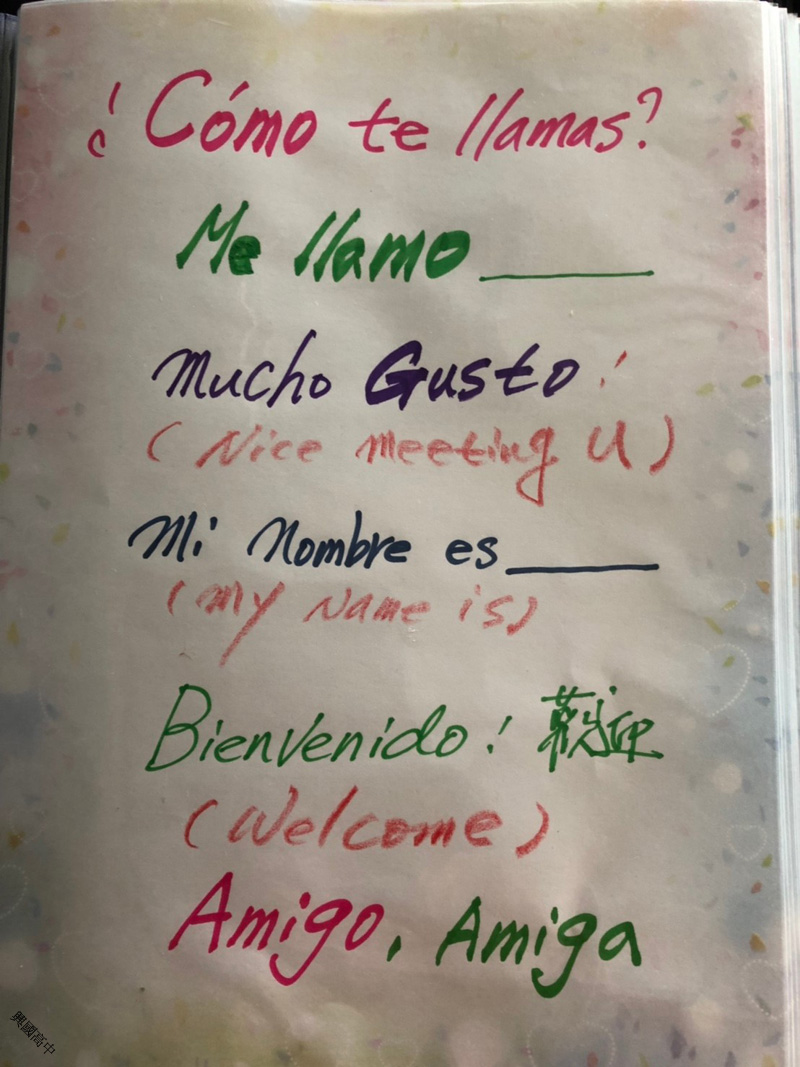 ¿Cómo te llamas?
Me llamo ______
Mucho Gusto!
(Nice meeting U)
Mi Nombre es ______
(My Name is)
Bienvenido! 歡迎
(Welcome)
Amigo, Amiga
興國高中